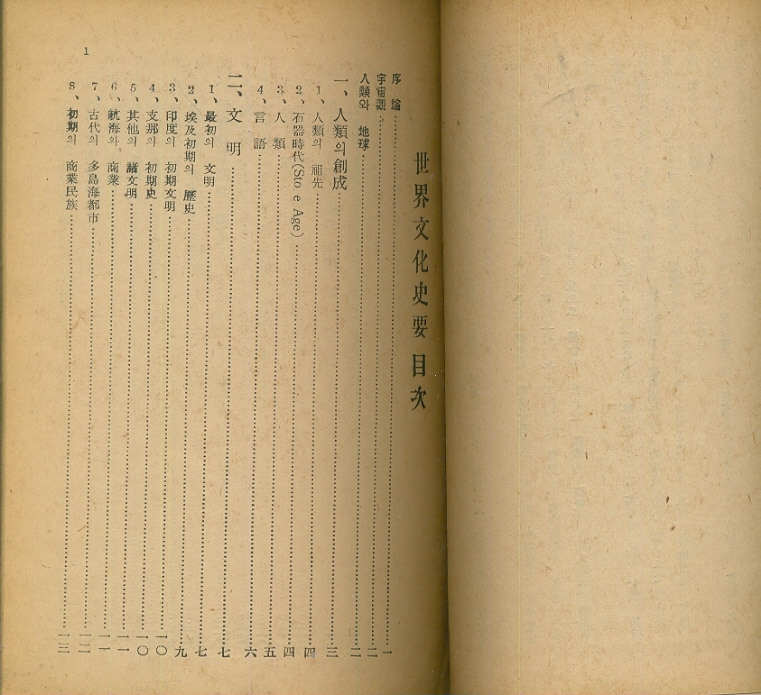 世界文化史要 目次
序論 一
宇宙觀 二
人類와 地球 二
一、人類의 創成 三
1、人類의 祖先 四
2、石器時代(Sto e Age) 四
3、人類 五
4、言語 六
二、文明 七
1、最初의 文明 七
2、埃及初期의 歷史 九
3、印度의 初期文明 一〇
4、支那의 初期史 一〇
5、其他의 諸文明 一一
6、航海와 商業 一一
7、古代의 多島海都市 一二
8、初期의 商業民族 一三
1